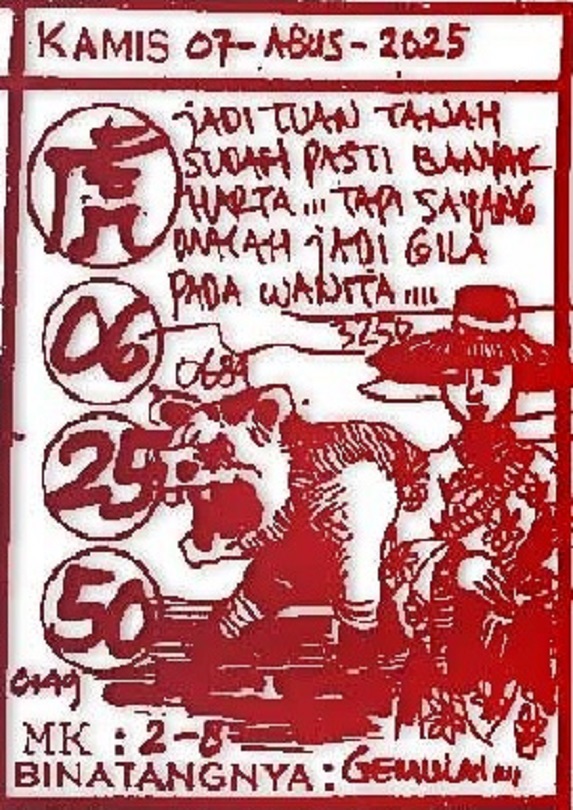 KAMIS 07-AGUS-2025
虎
JADI TUAN TANAH
SUDAH PASTI BANYAK
HARTA... TAPI SAYANG
MALAH JADI GILA
PADA WANITA....
06
25
50
0149
MK : 2-8
BINATANGNYA :